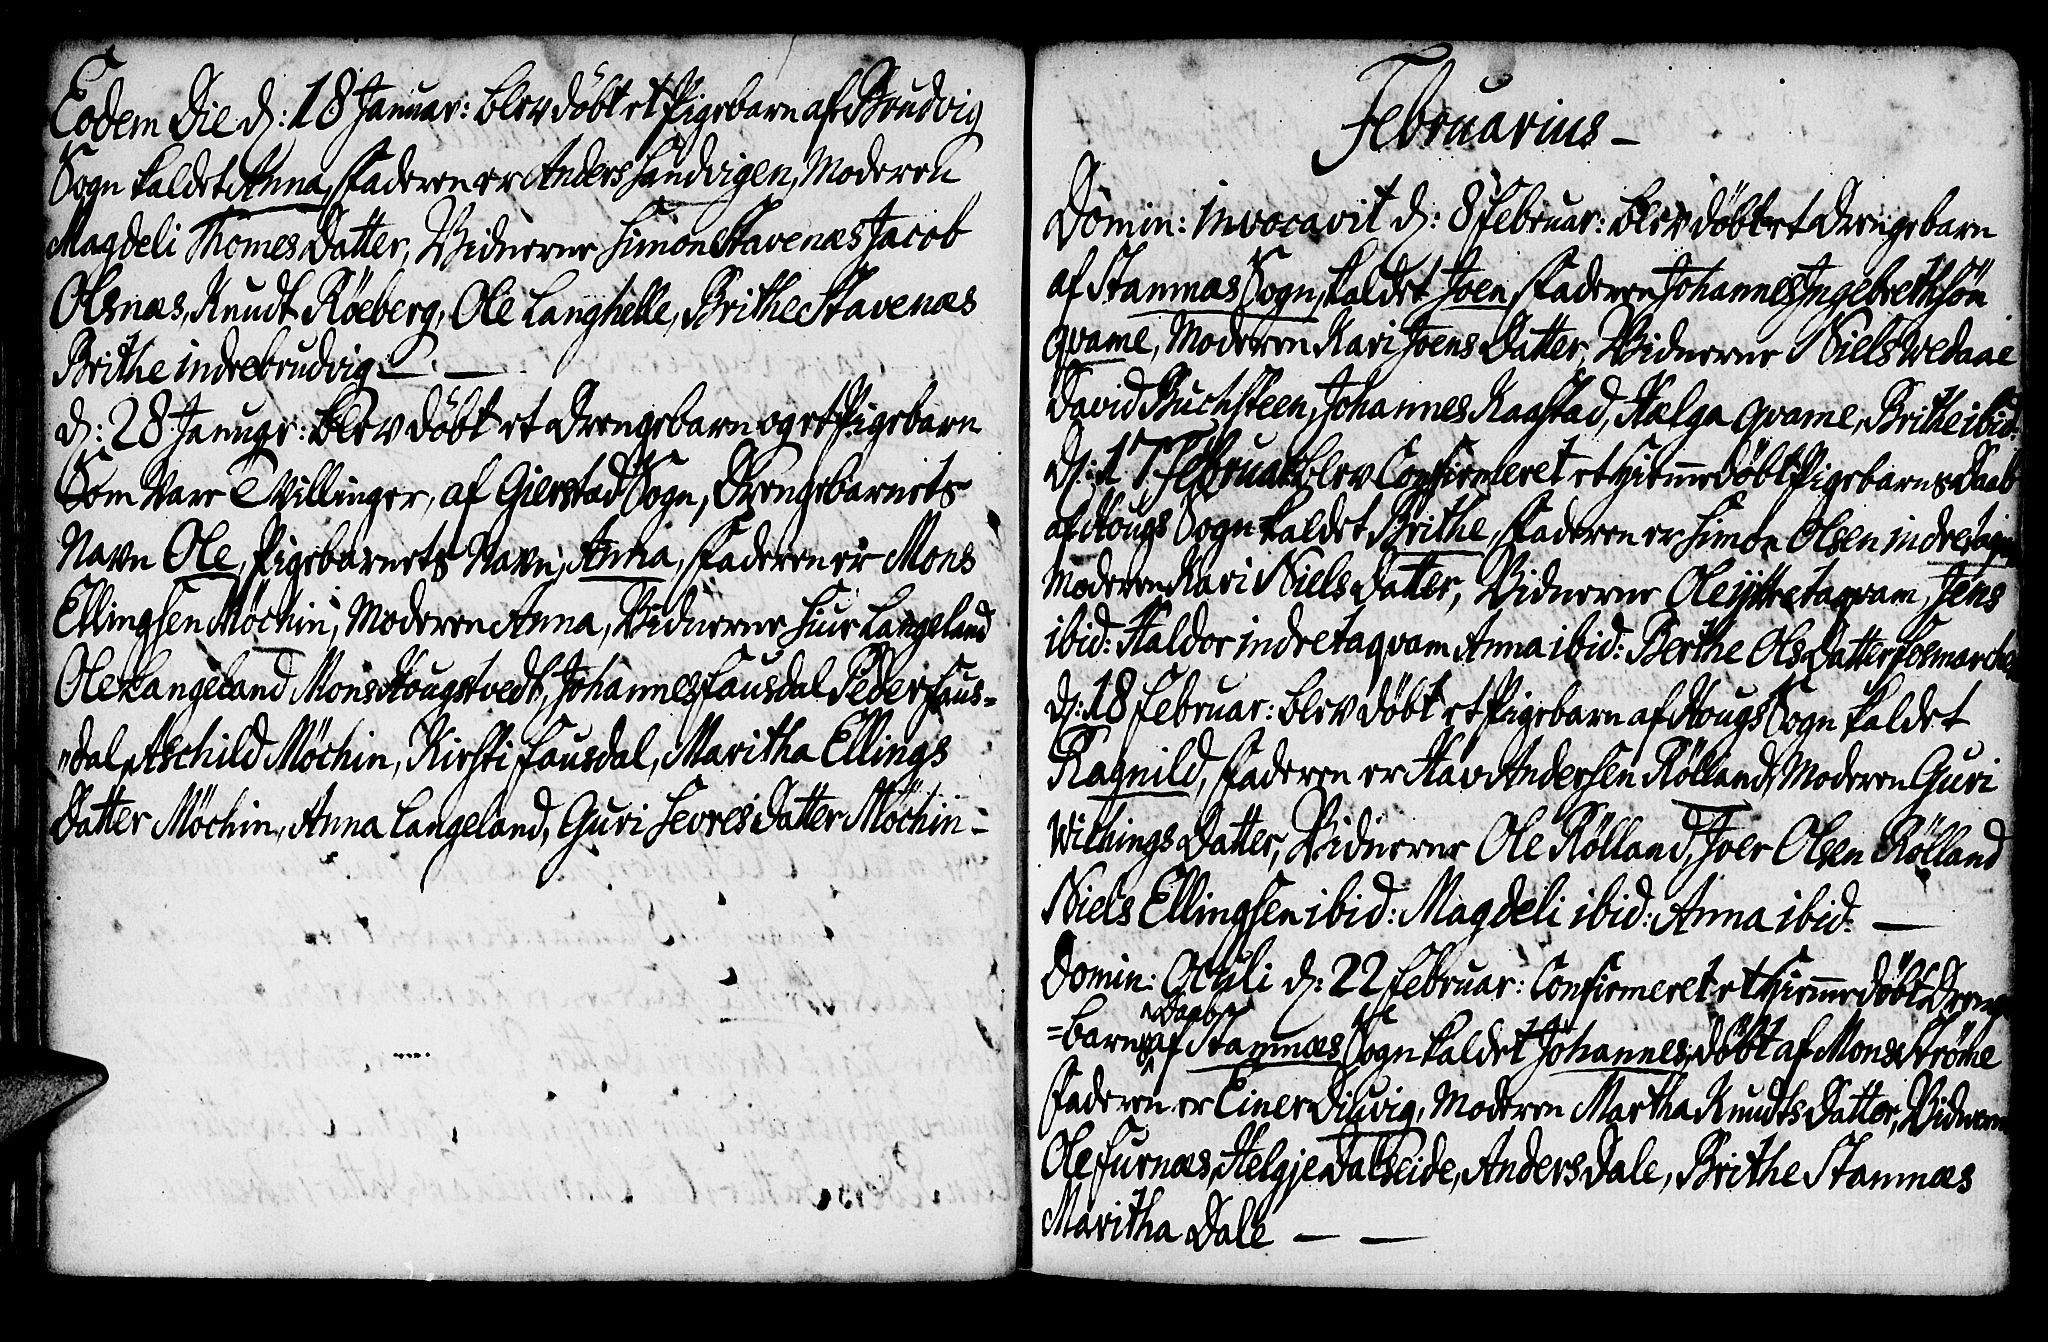 Eodem Die d: 18 Januar: blev döbt et Pigebarn af Brudvig
Sogn kaldet Anna, Faderen er Anders Sandvigen, Moderen
Magdeli Thomes Datter, Vidnerne Simon Stavenæs Jacob
Olsnæs, Knudt Röeberg, Ole Langhelle, Brithe Stavenæs
Brithe indrebrudvig. — —
d: 28 Januar: blev döbt et Drengebarn og et Pigebarn
Som Vare Tvillinger, af Gierstad Sogn, Drengebarnets
Navn Ole, Pigebarnets Navn, Anna, Faderen er Mons
Ellingsen Möchin, Moderen Anna, Vidnerne Siur Langeland
Ole Langeland Mons Hougstvedt, Johannes Fausdal Peder Faus=
"dal, Aschild Möchin, Kirsti Fausdal, Maritha Ellings
Datter Möchin, Anna Langeland, Guri Sevres Datter Möchin –
Februarius –
Domin: invocavit d: 8 Februar: blev döbt et Drengebarn
af Stamnæs Sogn, kaldet Joen, Faderen Johannes Ingebrethsön
qvame, Moderen Kari Joens Datter, Vidnerne Niels Vedaae
David Buchsteen, Johannes Raastad, Hælga qvame, Brithe ibid:
d: 17 Februar blev Confirmeret et hiemmedöbt Pigebarns Daab
af Hougs Sogn kaldet Brithe, Faderen er Simon Olsen indretaqvam
Moderen Kari Niels Datter, Vidnerne Ole yttretaqvam, Jens
ibid: Haldor indretaqvam Anna ibid: Berthe Ols Datter Fosmarchen
d: 18 Februar: blev döbt et Pigebarn af Hougs Sogn kaldet
Ragnild, Faderen er Hav Andersen Rölland, Moderen Guri
Vichings Datter, Vidnerne Ole Rölland, Joer Olsen Rölland
Niels Ellingsen ibid: Magdeli ibid: Anna ibid: —
Domin: Oculi d: 22 Februar: Confirmeret et hiemmedöbt Drenge
=barns Daab af Stamnæs Sogn kaldet Johannes, döbt af Mons Ströme
Faderen er Einer Diuvig, Moderen Martha Knudts Datter, Vidnerne
Ole Furnæs, Helgje Dalseide, Anders Dale, Brithe Stamnæs
Maritha Dale — —